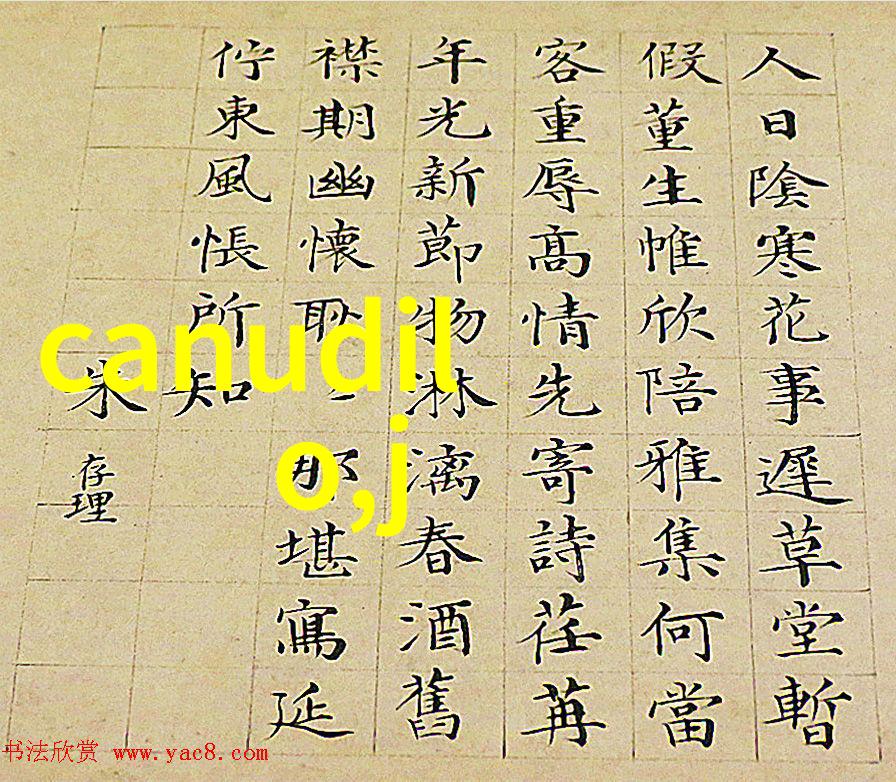 人日陰寒花事遲草堂暫
假董生帷欣陪雅集何當
客重辱髙情先寄詩荏苒
年光新節物淋漓春酒舊
襟期幽懷耿那堪寫延
佇東風悵所知
朱存理
canudil
o,j
书法欣赏 www.yac8.com